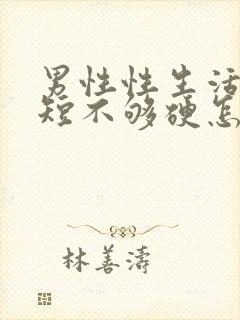 男性性生活
短不够硬怎
林善涛